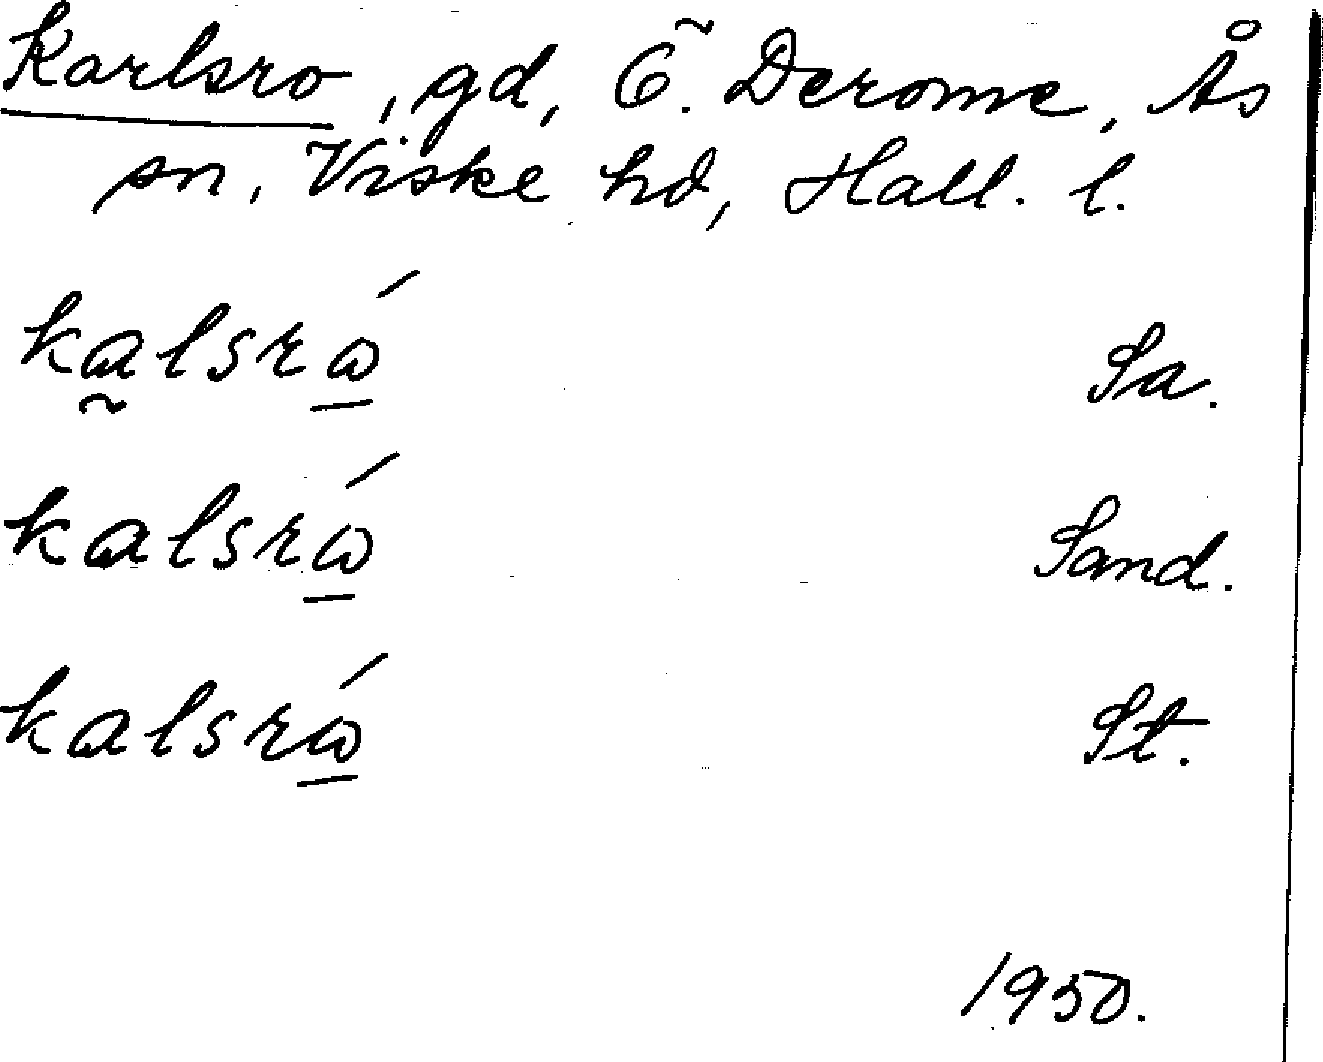 Karlsro, gd, Ö. Derome, Ås
sn, Viske hd, Hall. l.
ka̰lsrώ̱ Sa.
kalsrώ̱ Sand.
kalsrώ̱ St.
1950.